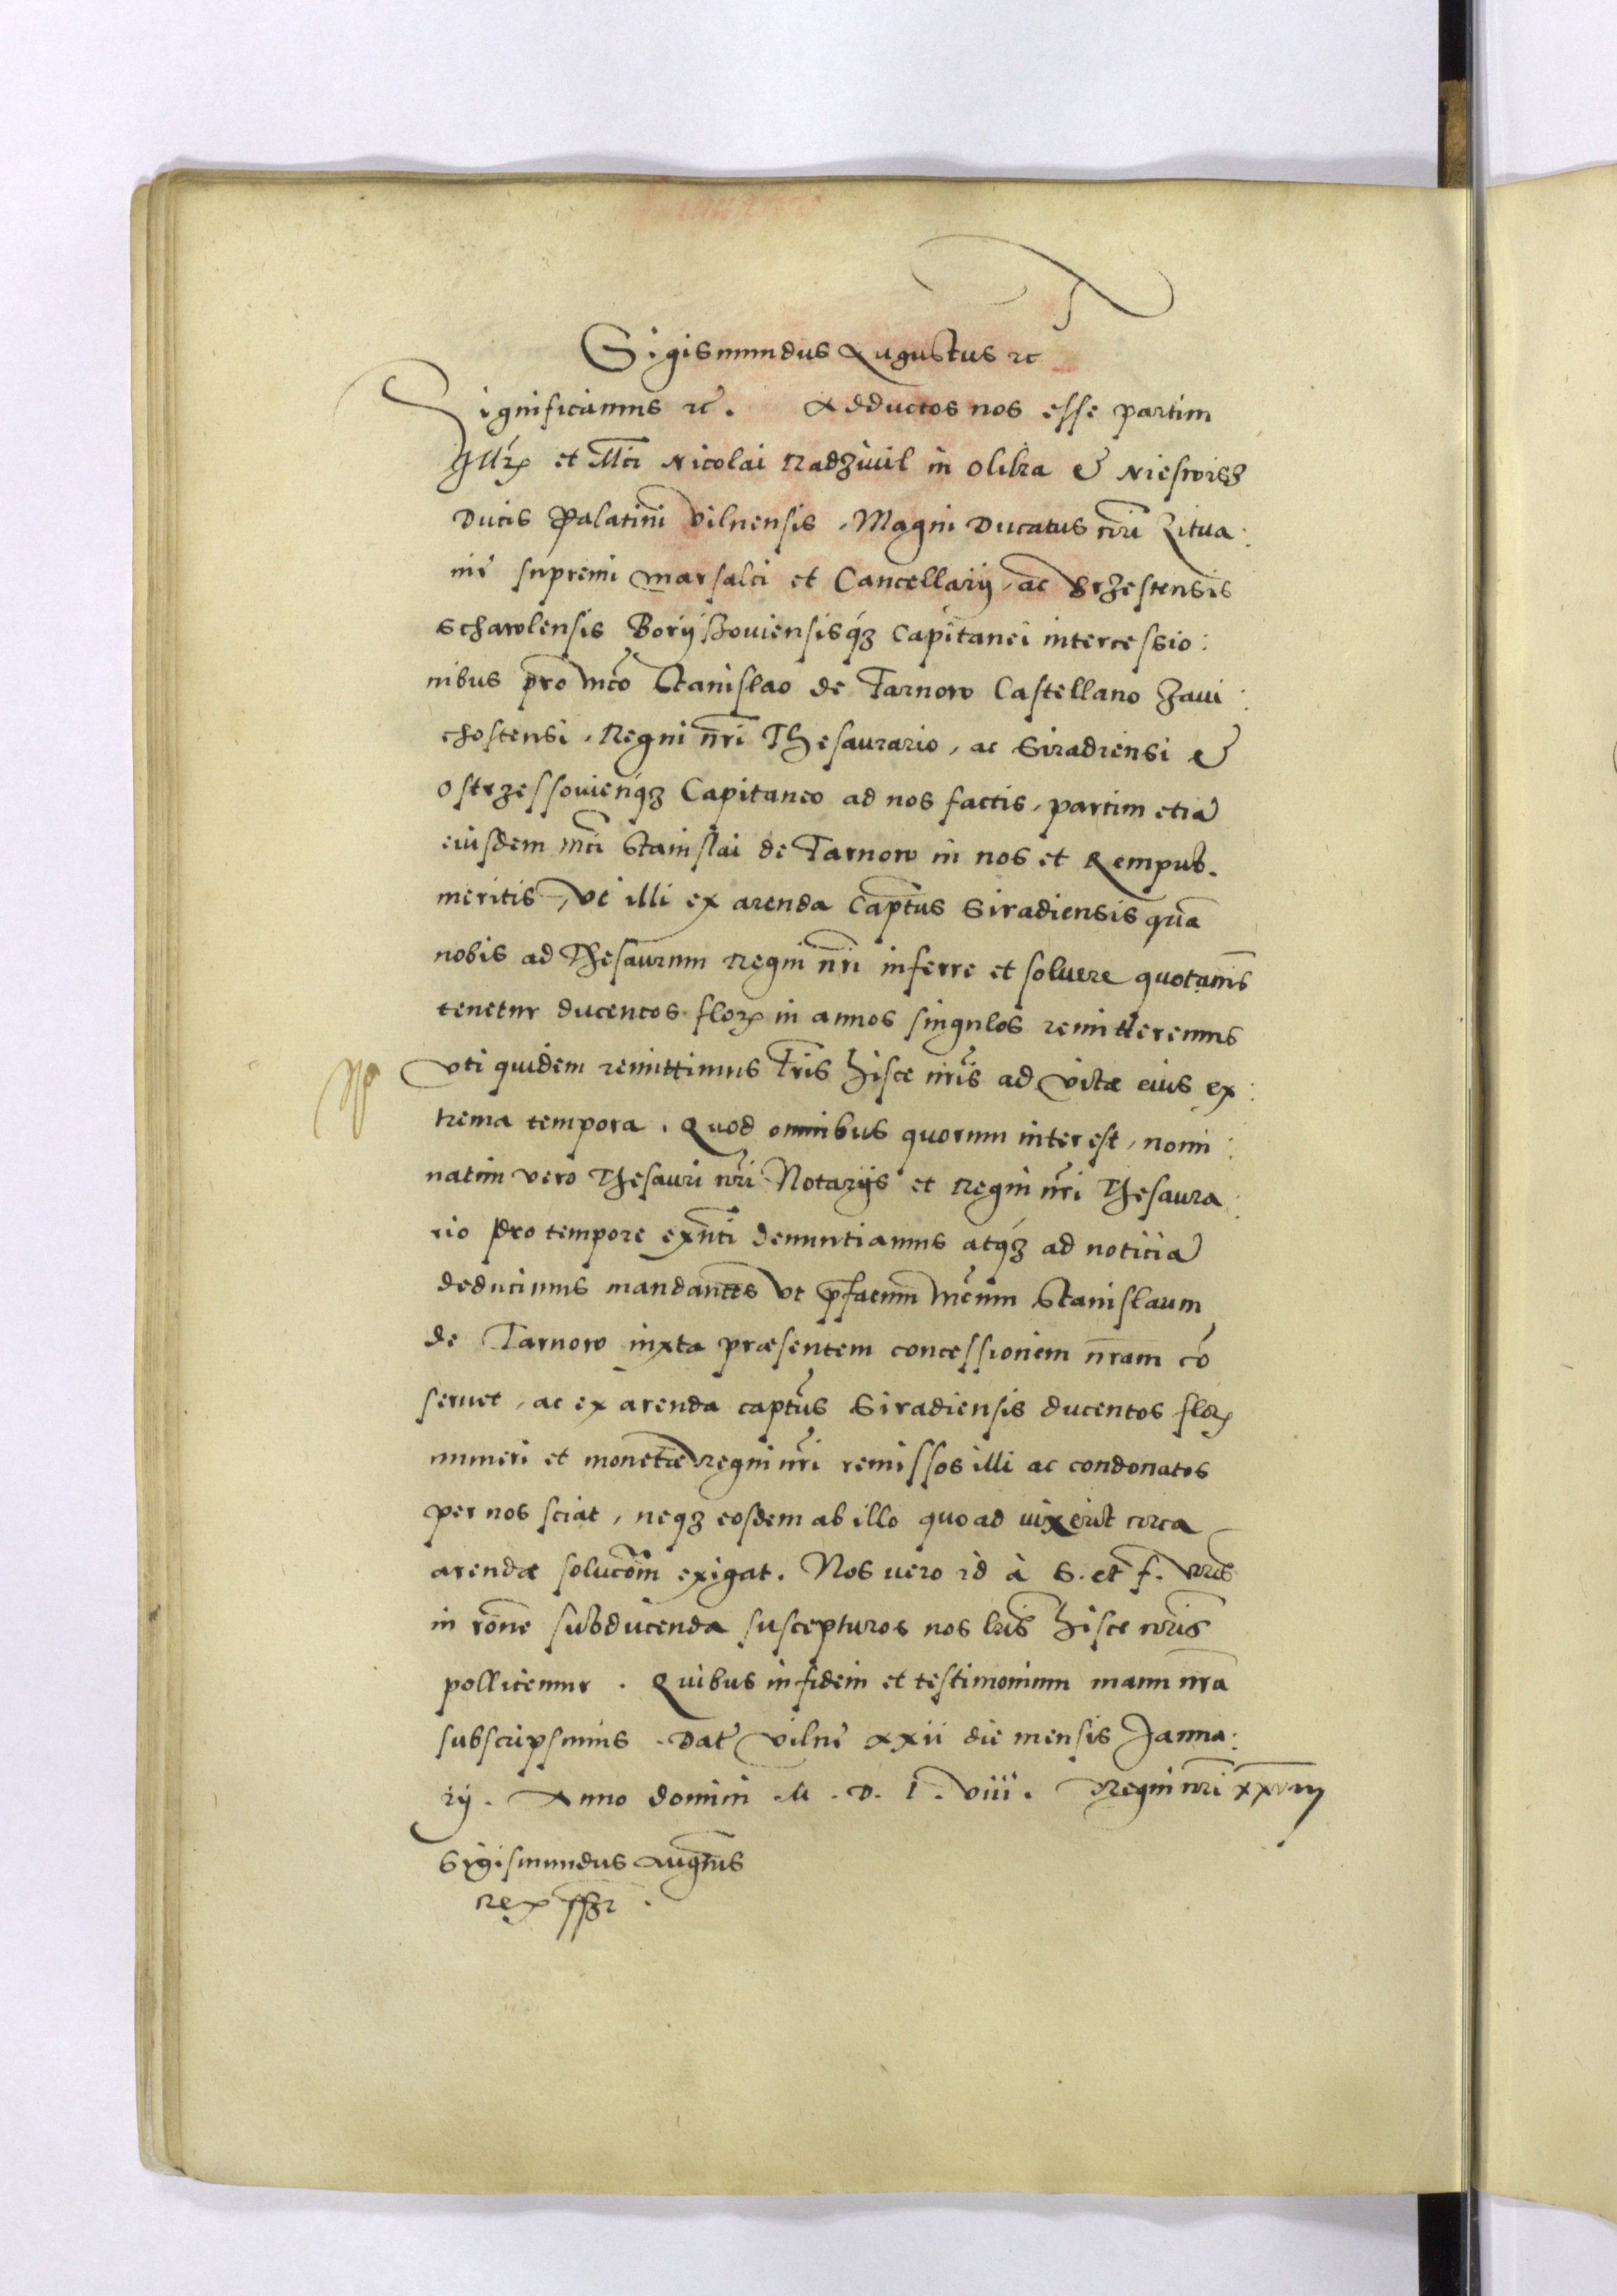 Sigismundus Augustus etc
Significamus etc. Adductos nos esse partim
Illris et Mci Nicolai Radziwil in Olika & Nieswisz
Ducis Palatini Vilnensis, Magni Ducatus nri Litua:
nie supremi Marsalci et Cancellarij, ac Brzestensis
Schawlensis Borijszouiensisq3 Capitanei intercessio:
nibus pro Mco Stanislao de Tarnow Castellano Zaui:
chostensi, Regni nri Thesaurario, ac Siradiensi &
Ostrzessouienq3 Capitaneo ad nos factis, partim etia
eiusdem Mci Stanislai de Tarnow in nos et Rempub.
meritis, vt illi ex arenda Captus Siradiensis qua
nobis ad Thesaurum Regni nri inferre et soluere quotanis
tenetur ducentos flor in annos singulos remitteremus
vti quidem remittimus lris hisce nris ad vitæ eius ex:
trema tempora. Quod omnibus quorum interest, nomi:
natim vero Thesauri nri Notarijs et Regni nri Thesaura:
rio pro tempore exnti denuntiamus atq3 ad noticia
deducimus mandantes vt pfatum Mcum Stanislaum
de Tarnow iuxta præsentem concessionem nram co
seruet, ac ex arenda captus Siradiensis ducentos flor
numeri et monetæ Regni nri remissos illi ac condonatos
per nos sciat, neq3 eosdem ab illo quoad uixerit circa
arendæ solucom exigat. Nos vero id à S. et f. vris
in rone subducenda suscepturos nos lris hisce nris
pollicemur. Quibus in fidem et testimonium manu nra
subscripsimus. Dat Vilne xxii die mensis Janua:
rij. Anno domini M. D. l. viii. Regni nri xxviiij
Sigismundus Augtus
Rex sszt.